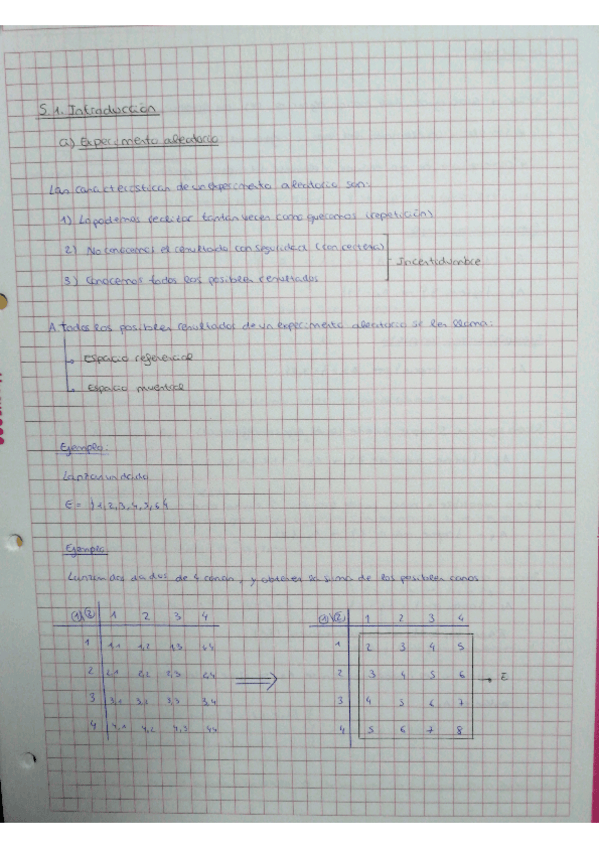 5.1. Introducción
a) Experimento aleatorio
Las características de un experimento aleatorio son:
1) Lo podemos realizar tantas veces como queramos (repetición)
2) No conocemos el resultado con seguridad (con certeza)
Incertidumbre
3) Conocemos todos los posibles resultados
A todos los posibles resultados de un experimento aleatorio se les llama:
Espacio referencial
Espacio muestral
Ejemplo:
Lanzar un dado
E = {1,2,3,4,5,6}
Ejemplo:
Lanzar dos dados de 4 caras, y obtener la suma de las posibles caras
(1) (2) 1 2 3 4
1 1,1 1,2 1,3
2 2,1 2,2 2,3 2,4
3 3,1 3,2 3,3 3,4
4 4,1 4,2 4,3 4,4
(1) (2) 1 2 3 4
1 2 3 4 5
2 3 4 5 6 → E
3 4 5 6 7
4 5 6 7 8